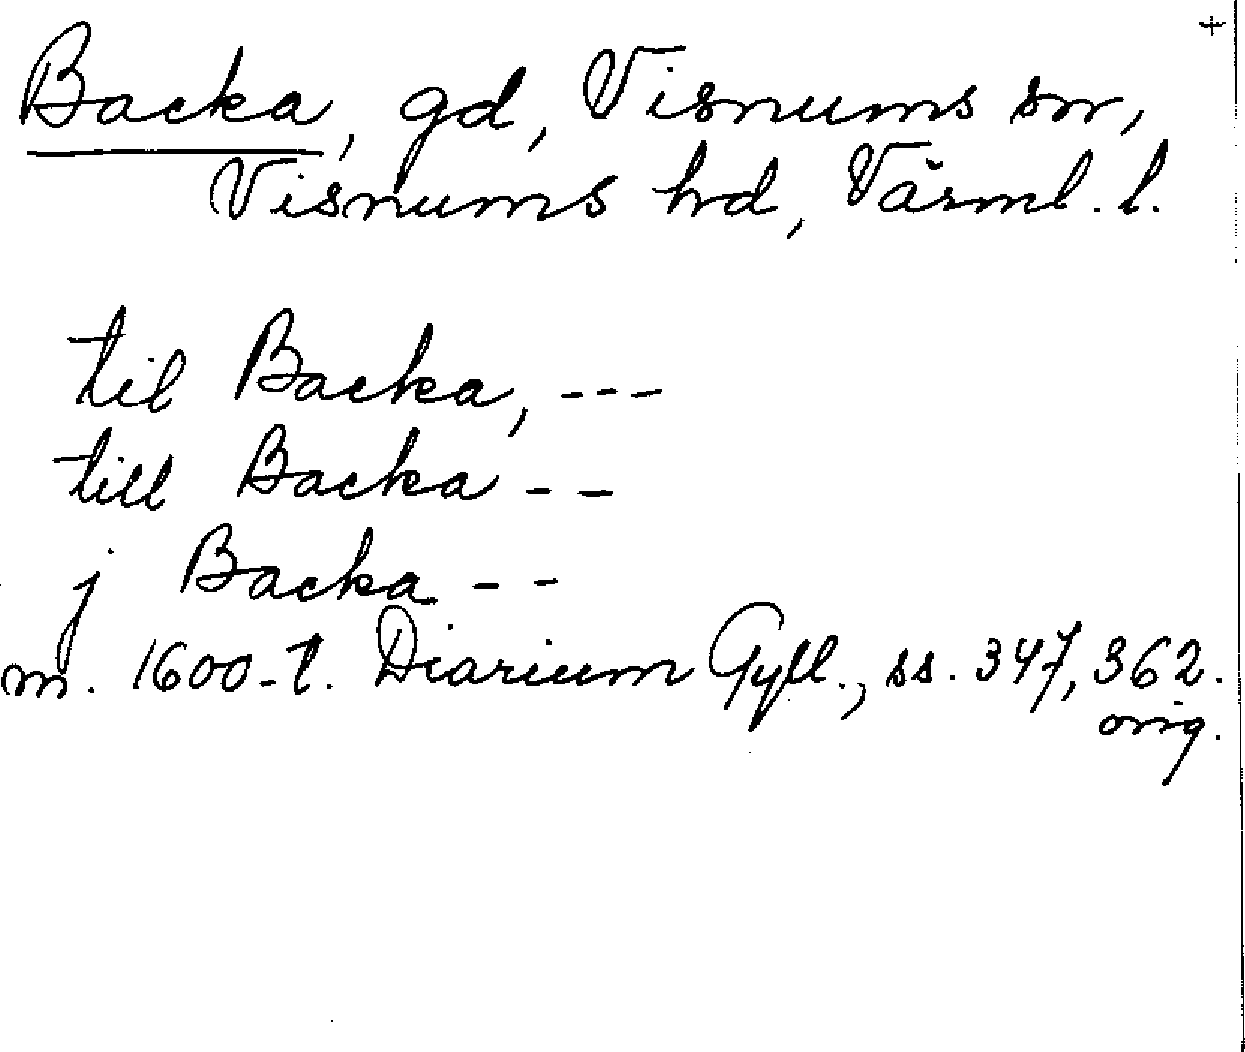 +
Backa, gd, Visnums sn,
Visnums hd, Värml. l.
til Backa, ---
till Backa --
j Backa --
m. 1600-t. Diarium Gyll., ss. 347, 362.
orig.